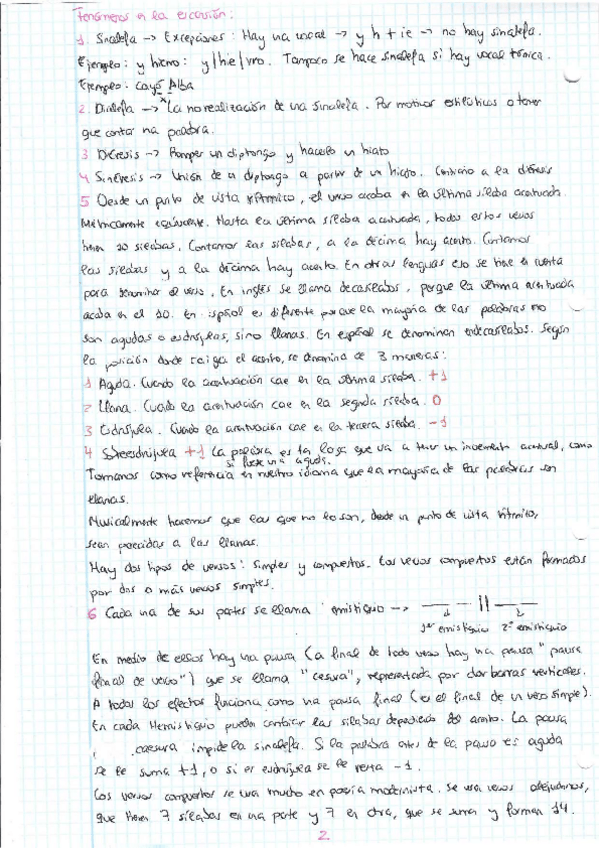 Fenómenos en la escansión:
1. Sinalefa -> Excepciones: Hay una vocal -> y h + ie -> no hay sinalefa.
Ejemplo: y hierro: y/hie/rro. Tampoco se hace sinalefa si hay vocal tónica.
Ejemplo: Cayó Alba
2. Dialefa -> La no realización de una sinalefa. Por motivos estilísticos o tener
que contar na palabra.
3 Diéresis -> Romper un diptongo y hacerlo un hiato
4 Sinéresis -> Unión de un diptongo a partir de un hiato. Contrario a la diéresis
5 Desde un punto de vista rítmico, el verso acaba en la última sílaba acentuada.
Métricamente equivalente. Hasta la última sílaba acentuada, todos estos versos
tienen 10 sílabas. Contamos las sílabas, a la décima hay acento. Contamos
las sílabas y a la décima hay acento. En otras lenguas eso se tiene en cuenta
para denominar el verso. En inglés se llama decasílabos, porque la última acentuada
acaba en el 10. En español es diferente porque la mayoría de las palabras no
son agudas o esdrújulas, sino llanas. En español se denominan endecasílabos. Según
la posición donde caiga el acento, se denomina de 3 maneras:
1 Aguda. Cuando la acentuación cae en la última sílaba. +1
2 Llana. Cuando la acentuación cae en la segunda sílaba. 0
3 Esdrújula. Cuando la acentuación cae en la tercera sílaba. -1
4 Sobreesdrújula +1 La palabra es tan larga que va a tener un incremento acentual, como
si fuese una aguda.
Tomamos como referencia en nuestro idioma que la mayoría de las palabras son
llanas.
Musicalmente hacemos que las que no lo son, desde un punto de vista rítmico,
sean parecidas a las llanas.
Hay dos tipos de versos: simples y compuestos. Los versos compuestos están formados
por dos o más versos simples.
6 Cada una de sus partes se llama emistiquio ->
1er emistiquio 2º emistiquio
En medio de ellos hay una pausa (a final de todo verso hay una pausa "pausa
final de verso") que se llama "cesura", representada por dos barras verticales.
A todos los efectos funciona como una pausa final (es el final de un verso simple).
En cada Hemistiquio pueden cambiar las sílabas depediedo del acento. La pausa
caesura impide la sinalefa. Si la palabra antes de la pausa es aguda
se le suma +1, o si es esdrújula se le resta -1.
Los versos compuestos se usa mucho en poesía modernista. Se usa versos alejadrinos,
que tienen 7 sílabas en una parte y 7 en otra, que se suma y forman 14.
2